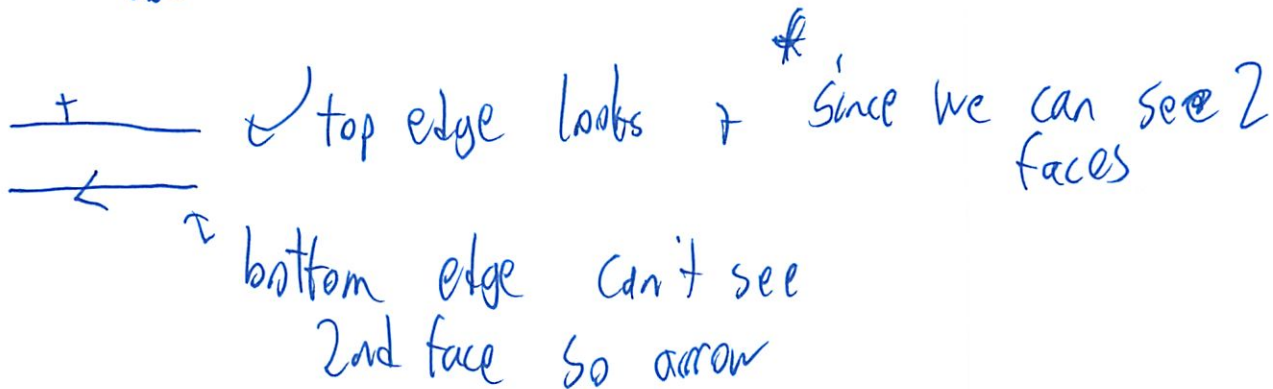 +
top edge looks + * since we can see 2
faces
bottom edge can't see
2nd face so arrow